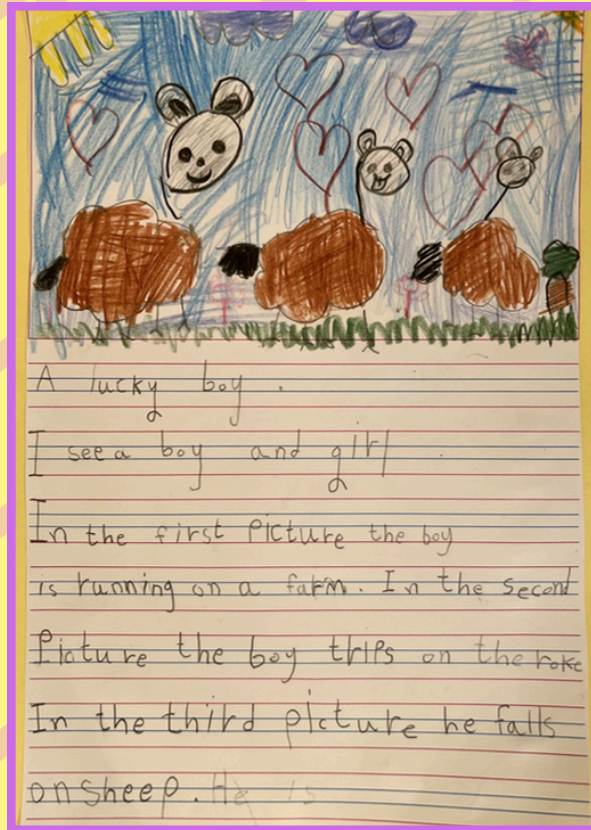 A lucky boy.
I see a boy and girl
In the first picture the boy
is running on a farm. In the second
Picture the boy trips on the roke
In the third picture he falls
on sheep. He is